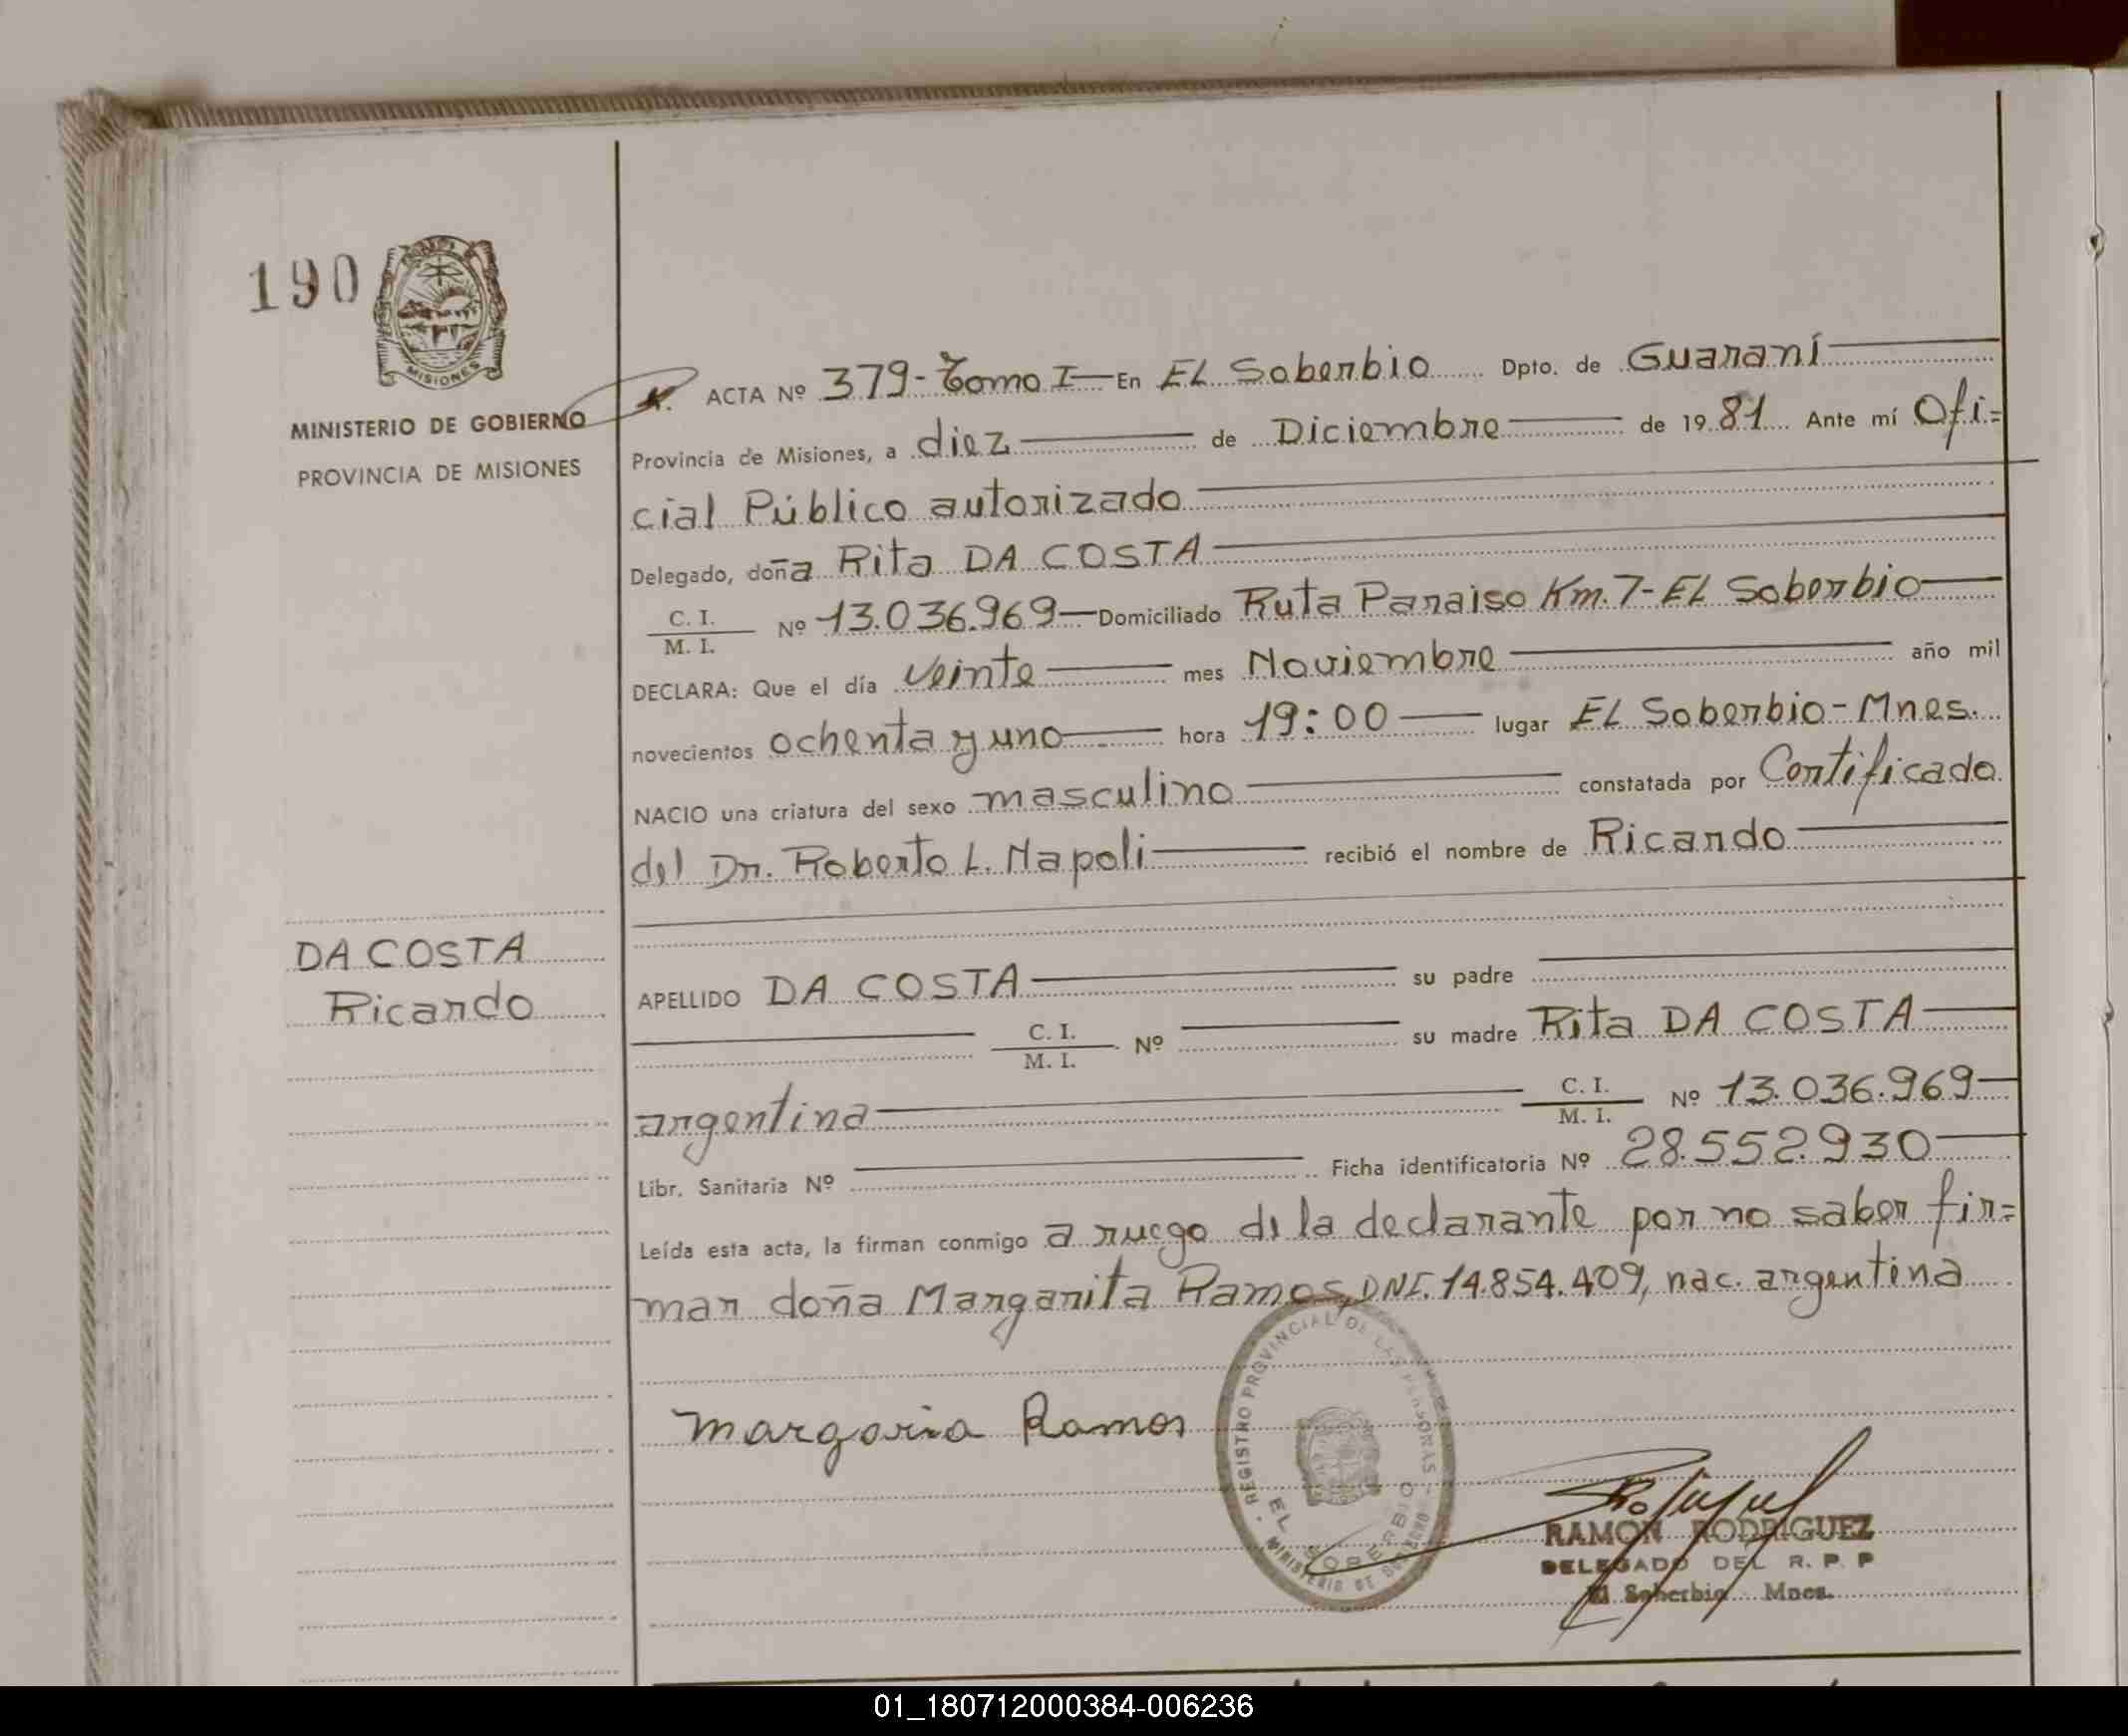 190
MISIONES
MINISTERIO DE GOBIERNO
PROVINCIA DE MISIONES
DA COSTA
Ricardo
ACTA Nº 379-Tomo I En EL Soberbio Dpto. de Guaraní
Provincia de Misiones, a diez de Diciembre de 1981 Ante mí Ofi=
cial Público autorizado
Delegado, doña Rita DA COSTA
C. I.
M. I. Nº 13.036.969 Domiciliado Ruta Paraiso Km.7-EL Soberbio
DECLARA: Que el día veinte mes Noviembre año mil
novecientos ochenta y uno hora 19:00 lugar EL Soberbio-Mnes.
NACIO una criatura del sexo masculino constatada por Certificado
del Dr. Roberto L. Napoli recibió el nombre de Ricardo
APELLIDO DA COSTA su padre
C. I.
M. I. Nº su madre Rita DA COSTA
argentina C. I.
M. I. Nº 13.036.969
Libr. Sanitaria Nº Ficha identificatoria Nº 28.552.930
Leída esta acta, la firman conmigo a ruego de la declarante por no saber fir=
mar doña Margarita Ramos, DNI. 14.854.409, nac. argentina
Ramos
REGISTRO PROVINCIAL DE LAS PERSONAS
EL SOBERBIO
MINISTERIO DE GOBIERNO
RAMON RODRIGUEZ
DELEGADO DEL R. P. P
El Soberbio Mnes.
01_180712000384-006236